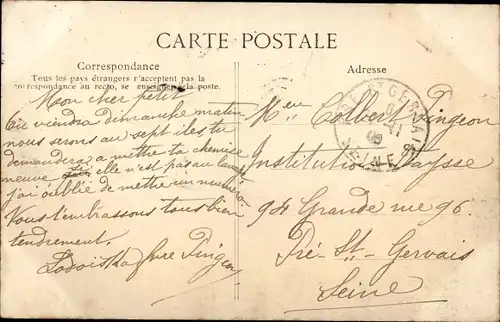 CARTE POSTALE
Correspondance
Tous les pays étrangers n'acceptent pas la
correspondance au recto, se renseigner à la poste.
Adresse
Mon cher petit
Tu viendra dimanche matin
nous serons au sept iles tu
demandera a mettre ta chemise
neuve elle n'est pas au lavage
j'ai oublié de mettre un numéro.
Vous t'embrassons tous bien
tendrement.
Pingeon
Mr Colbert Pingeon
Institution
94 Grande rue 96.
Pré-St-Gervais
Seine
ST GERVAIS
09
SEINE